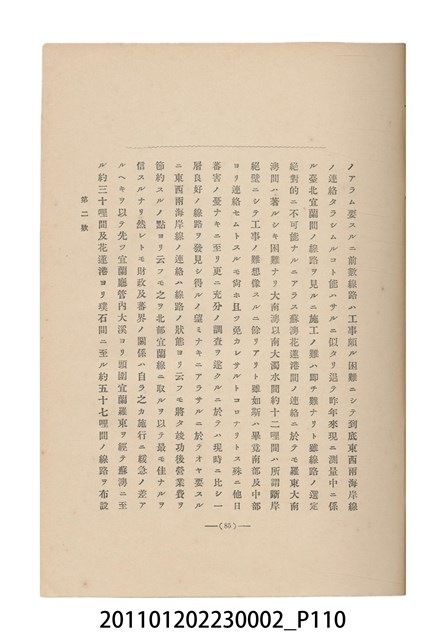 ノアラム要スルニ前數線路ハ工事頗ル困難ニシテ到底東西兩海岸線
ノ連絡タラシムルコト能ハサルニ似タリ退テ昨年來現ニ測量中ニ係
ル臺北宜蘭間ノ線路ヲ見ルニ施工ノ難ハ卽チ難ナリト雖線路ノ選定
絕對的ニ不可能ナルニアラス蘇澳花蓮港間ノ連絡ニ於テモ羅東大南
澳間ハ著ルシキ困難ナリ大南澳以南大濁水間約十二哩間ハ所謂斷岸
絕壁ニシテ工事ノ難想像スルニ餘リアリト雖如斯ハ畢竟南部及中部
ヨリ連絡セムトスルモ尙ホ且ツ免カレサルトコロナリトス殊ニ他日
蕃害ノ憂ナキニ至リ更ニ充分ノ調査ヲ遂クルニ於テハ現時ニ比シ一
層良好ノ線路ヲ發見シ得ルノ望ミナキニアラサルニ於テオヤ要スル
ニ東西兩海岸線ノ連絡ハ線路ノ狀態ヨリ云フモ將タ竣功後營業費ヲ
節約スルノ點ヨリ云フモ之ヲ北部宜蘭線ニ取ルヲ以テ最モ佳ナルヲ
信スルナリ然レトモ財政及蕃界ノ關係ハ自ラ之カ施行ニ緩急ノ差ア
ルヘキヲ以テ先ツ宜蘭廳管內大溪ヨリ頭圍宜蘭羅東ヲ經テ蘇澳ニ至
ル約三十哩間及花蓮港ヨリ璞石閣ニ至ル約五十七哩間ノ線路ヲ布設
第二款
(85)
201101202230002_P110